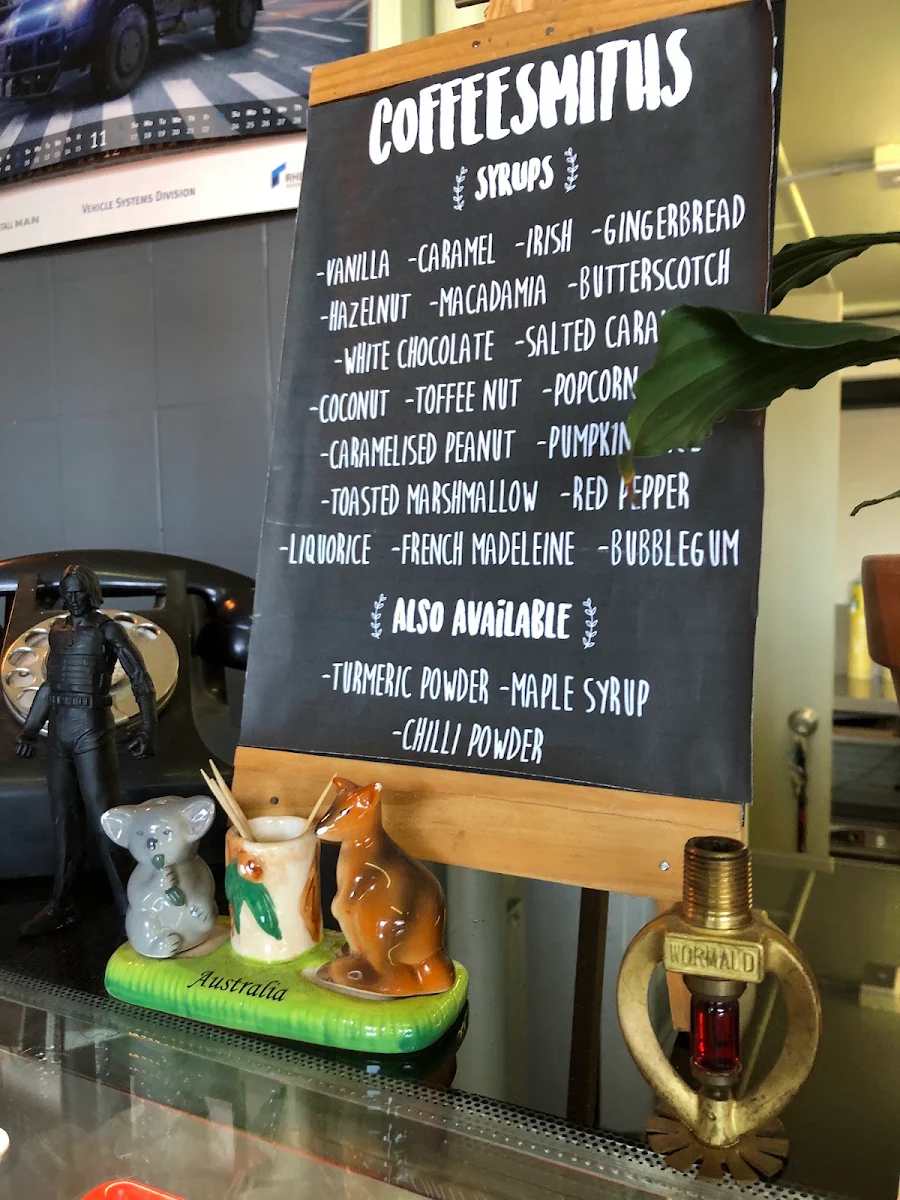 11
VEHICLE SYSTEMS DIVISION
MAN
COFFEESMITHS
SYRUPS
-VANILLA -CARAMEL -IRISH -GINGERBREAD
-HAZELNUT -MACADAMIA -BUTTERSCOTCH
-WHITE CHOCOLATE -SALTED
-COCONUT -TOFFEE NUT -POPCORN
-CARAMELISED PEANUT
-TOASTED MARSHMALLOW -RED PEPPER
-LIQUORICE -FRENCH MADELEINE -BUBBLEGUM
ALSO AVAILABLE
-TURMERIC POWDER -MAPLE SYRUP
-CHILLI POWDER
Australia
WORMALD